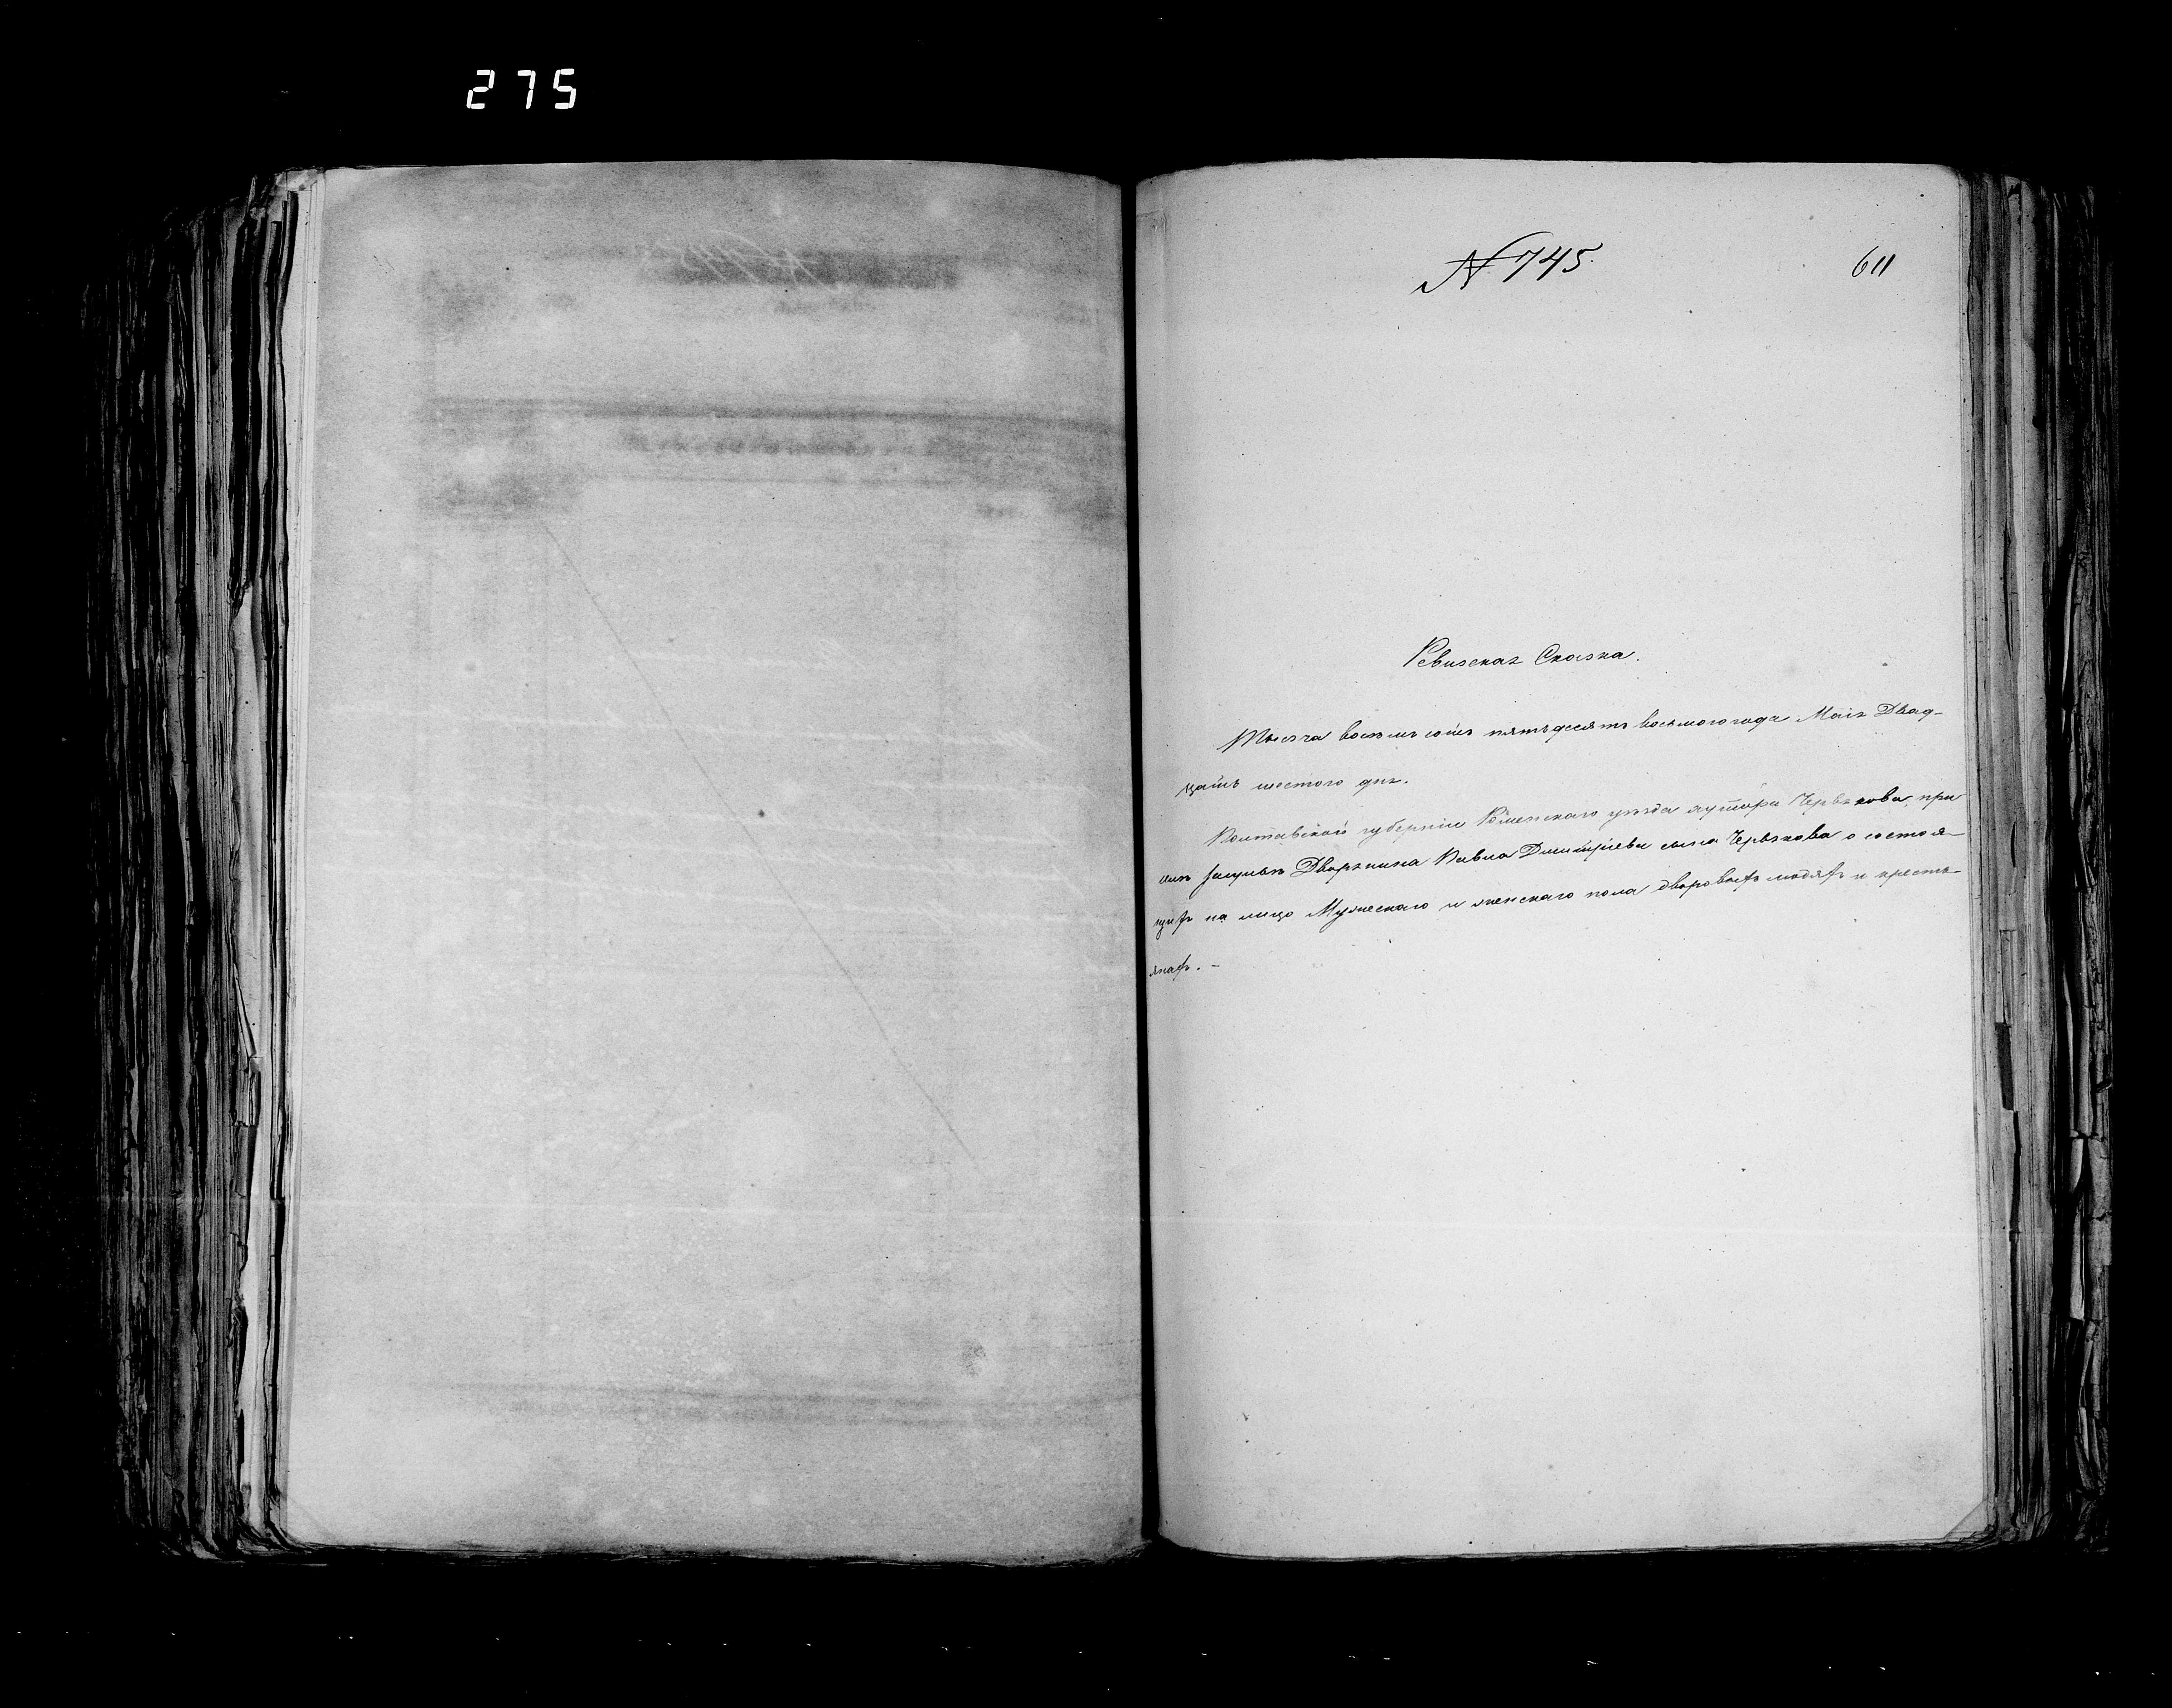 275
№ 745.
611
Ревизская Сказка.
Тысяча восемь сотъ пятьдесятъ восьмого года Маія Двад-
цать шестого дня.
Полтавской губерніи Роменскаго уѣзда хутора Червякова, при
Дворянина Павла Дмитріева сына Червякова о состоя-
щихъ на лицо Мужескаго и женскаго пола дворовыхъ людяхъ и кресть-
янахъ. –